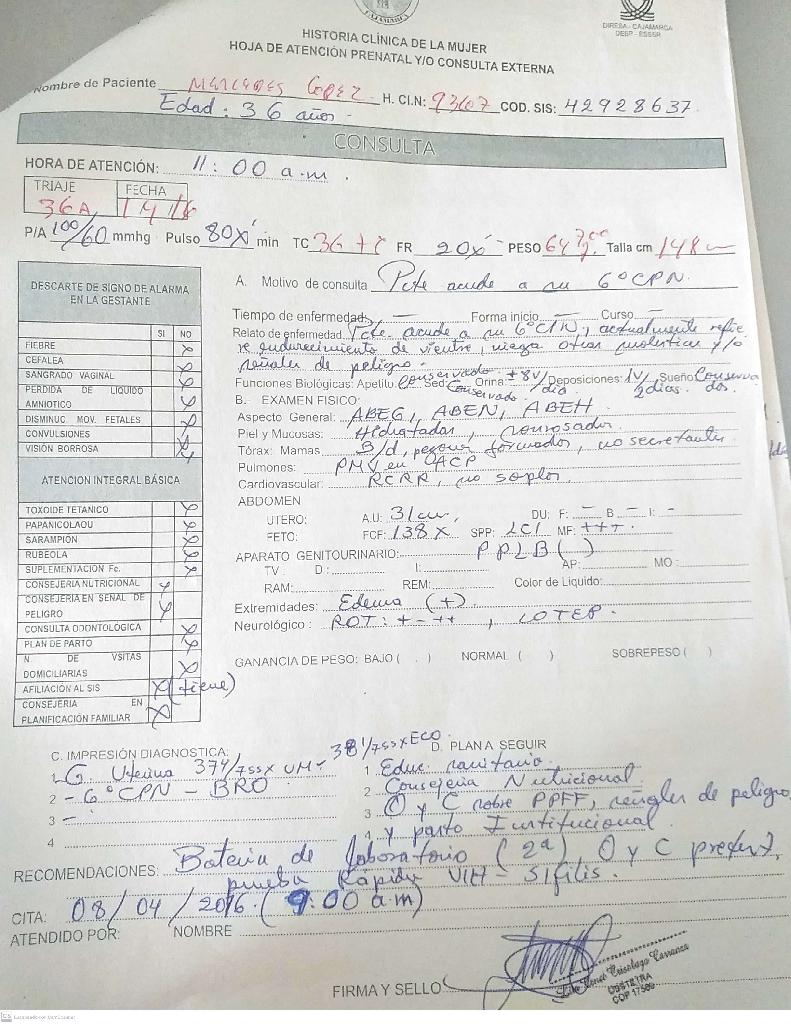 CAJAMARCA
DIRESA - CAJAMARCA
DESP - ESSSR
HISTORIA CLÍNICA DE LA MUJER
HOJA DE ATENCIÓN PRENATAL Y/O CONSULTA EXTERNA
Nombre de Paciente Mercedes Lopez H. CI.N: 93607 COD. SIS: 42928637
Edad: 36 años.-
CONSULTA
HORA DE ATENCIÓN: 11:00 a.m.
TRIAJE FECHA
36A
P/A 100/60 mmhg Pulso 80X' min TC 36 FR 20x' PESO Talla cm 148
DESCARTE DE SIGNO DE ALARMA
EN LA GESTANTE
SI NO
FIEBRE
CEFALEA
SANGRADO VAGINAL
PERDIDA DE LIQUIDO
AMNIOTICO
DISMINUC. MOV. FETALES
CONVULSIONES
VISIÓN BORROSA
ATENCION INTEGRAL BÁSICA
TOXOIDE TETANICO
PAPANICOLAOU
SARAMPIÓN
RUBEOLA
SUPLEMENTACION Fe.
CONSEJERIA NUTRICIONAL
CONSEJERIA EN SEÑAL DE
PELIGRO
CONSULTA ODONTOLÓGICA
PLAN DE PARTO
N. DE VSITAS
DOMICILIARIAS
AFILIACIÓN AL SIS X (tiene)
CONSEJERIA EN
PLANIFICACIÓN FAMILIAR X
A. Motivo de consulta Pcte acude a su 6° CPN.
Tiempo de enfermedad: — Forma inicio — Curso —
Relato de enfermedad Pcte. acude a su 6° CPN; actualmente refie
re endurecimiento de vientre, niega otras molestias y/o
señales de peligro.
Funciones Biológicas: Apetito Conservado Sed: Conservado. Orina: ±8v/día Deposiciones: 1V/2dias. Sueño Conservados.
B. EXAMEN FISICO:
Aspecto General: ABEG, ABEN, ABEH
Piel y Mucosas: Hidratadas, sonrosadas
Tórax: Mamas S/d, pezones formados, no secretantes
Pulmones: PMV en OACP
Cardiovascular: RCRR, no soplos.
ABDOMEN
UTERO: A.U: 31cm, DU: F: — B — I: -
FETO: FCF: 138 X SPP: LCI MF: +++.
APARATO GENITOURINARIO: PPLB (-)
TV D: I: AP: MO:
RAM: REM: Color de Liquido:
Extremidades: Edema (+)
Neurológico: ROT: +-++, LOTEP.
GANANCIA DE PESO: BAJO ( . ) NORMAL ( ) SOBREPESO ( )
C. IMPRESIÓN DIAGNOSTICA: ECO
1 G. Uterina UM
2 - 6° CPN - BRO
3 -
4
D. PLAN A SEGUIR
1 Educ. sanitaria.
2 Consejería Nutricional
3 O y C sobre PPFF, señales de peligro
4 y parto Institucional
RECOMENDACIONES: Bateria de laboratorio (2ª) O y C
prueba Rápida VIH - Sífilis.
CITA: 08/04/2016 (9:00 a.m)
ATENDIDO POR: NOMBRE
FIRMA Y SELLO
OBSTETRA